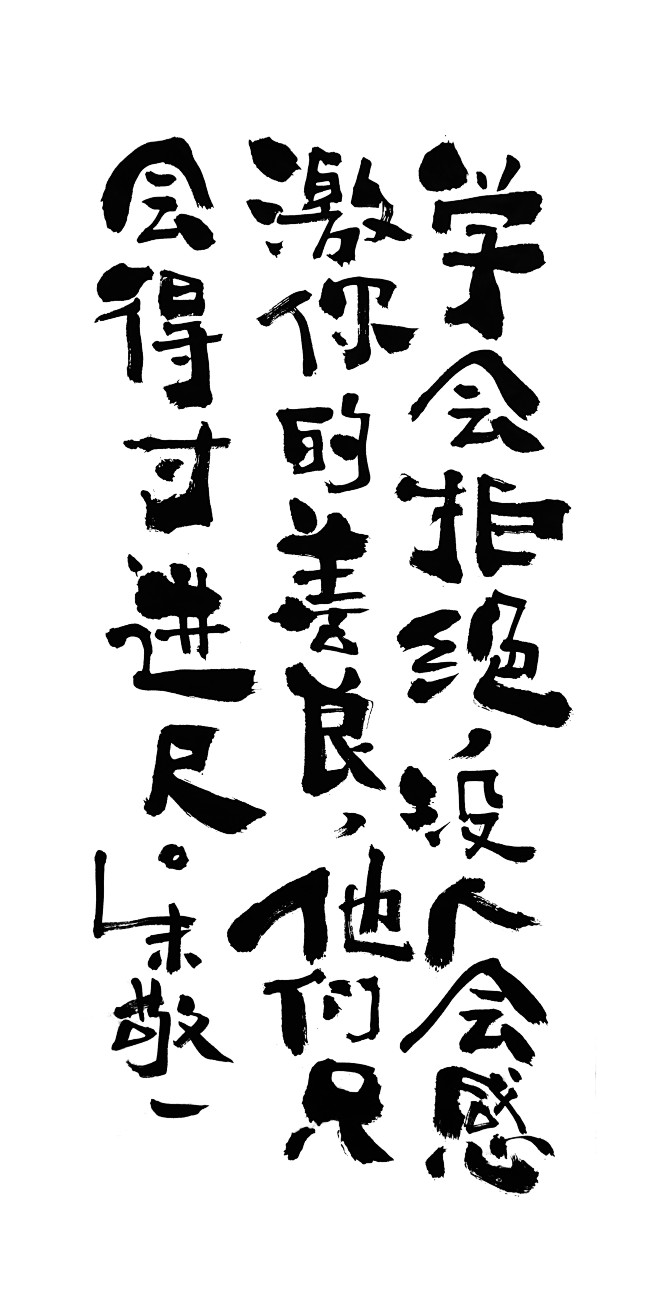 学会拒绝，没人会感
激你的善良，他们只
会得寸进尺。朱敬一